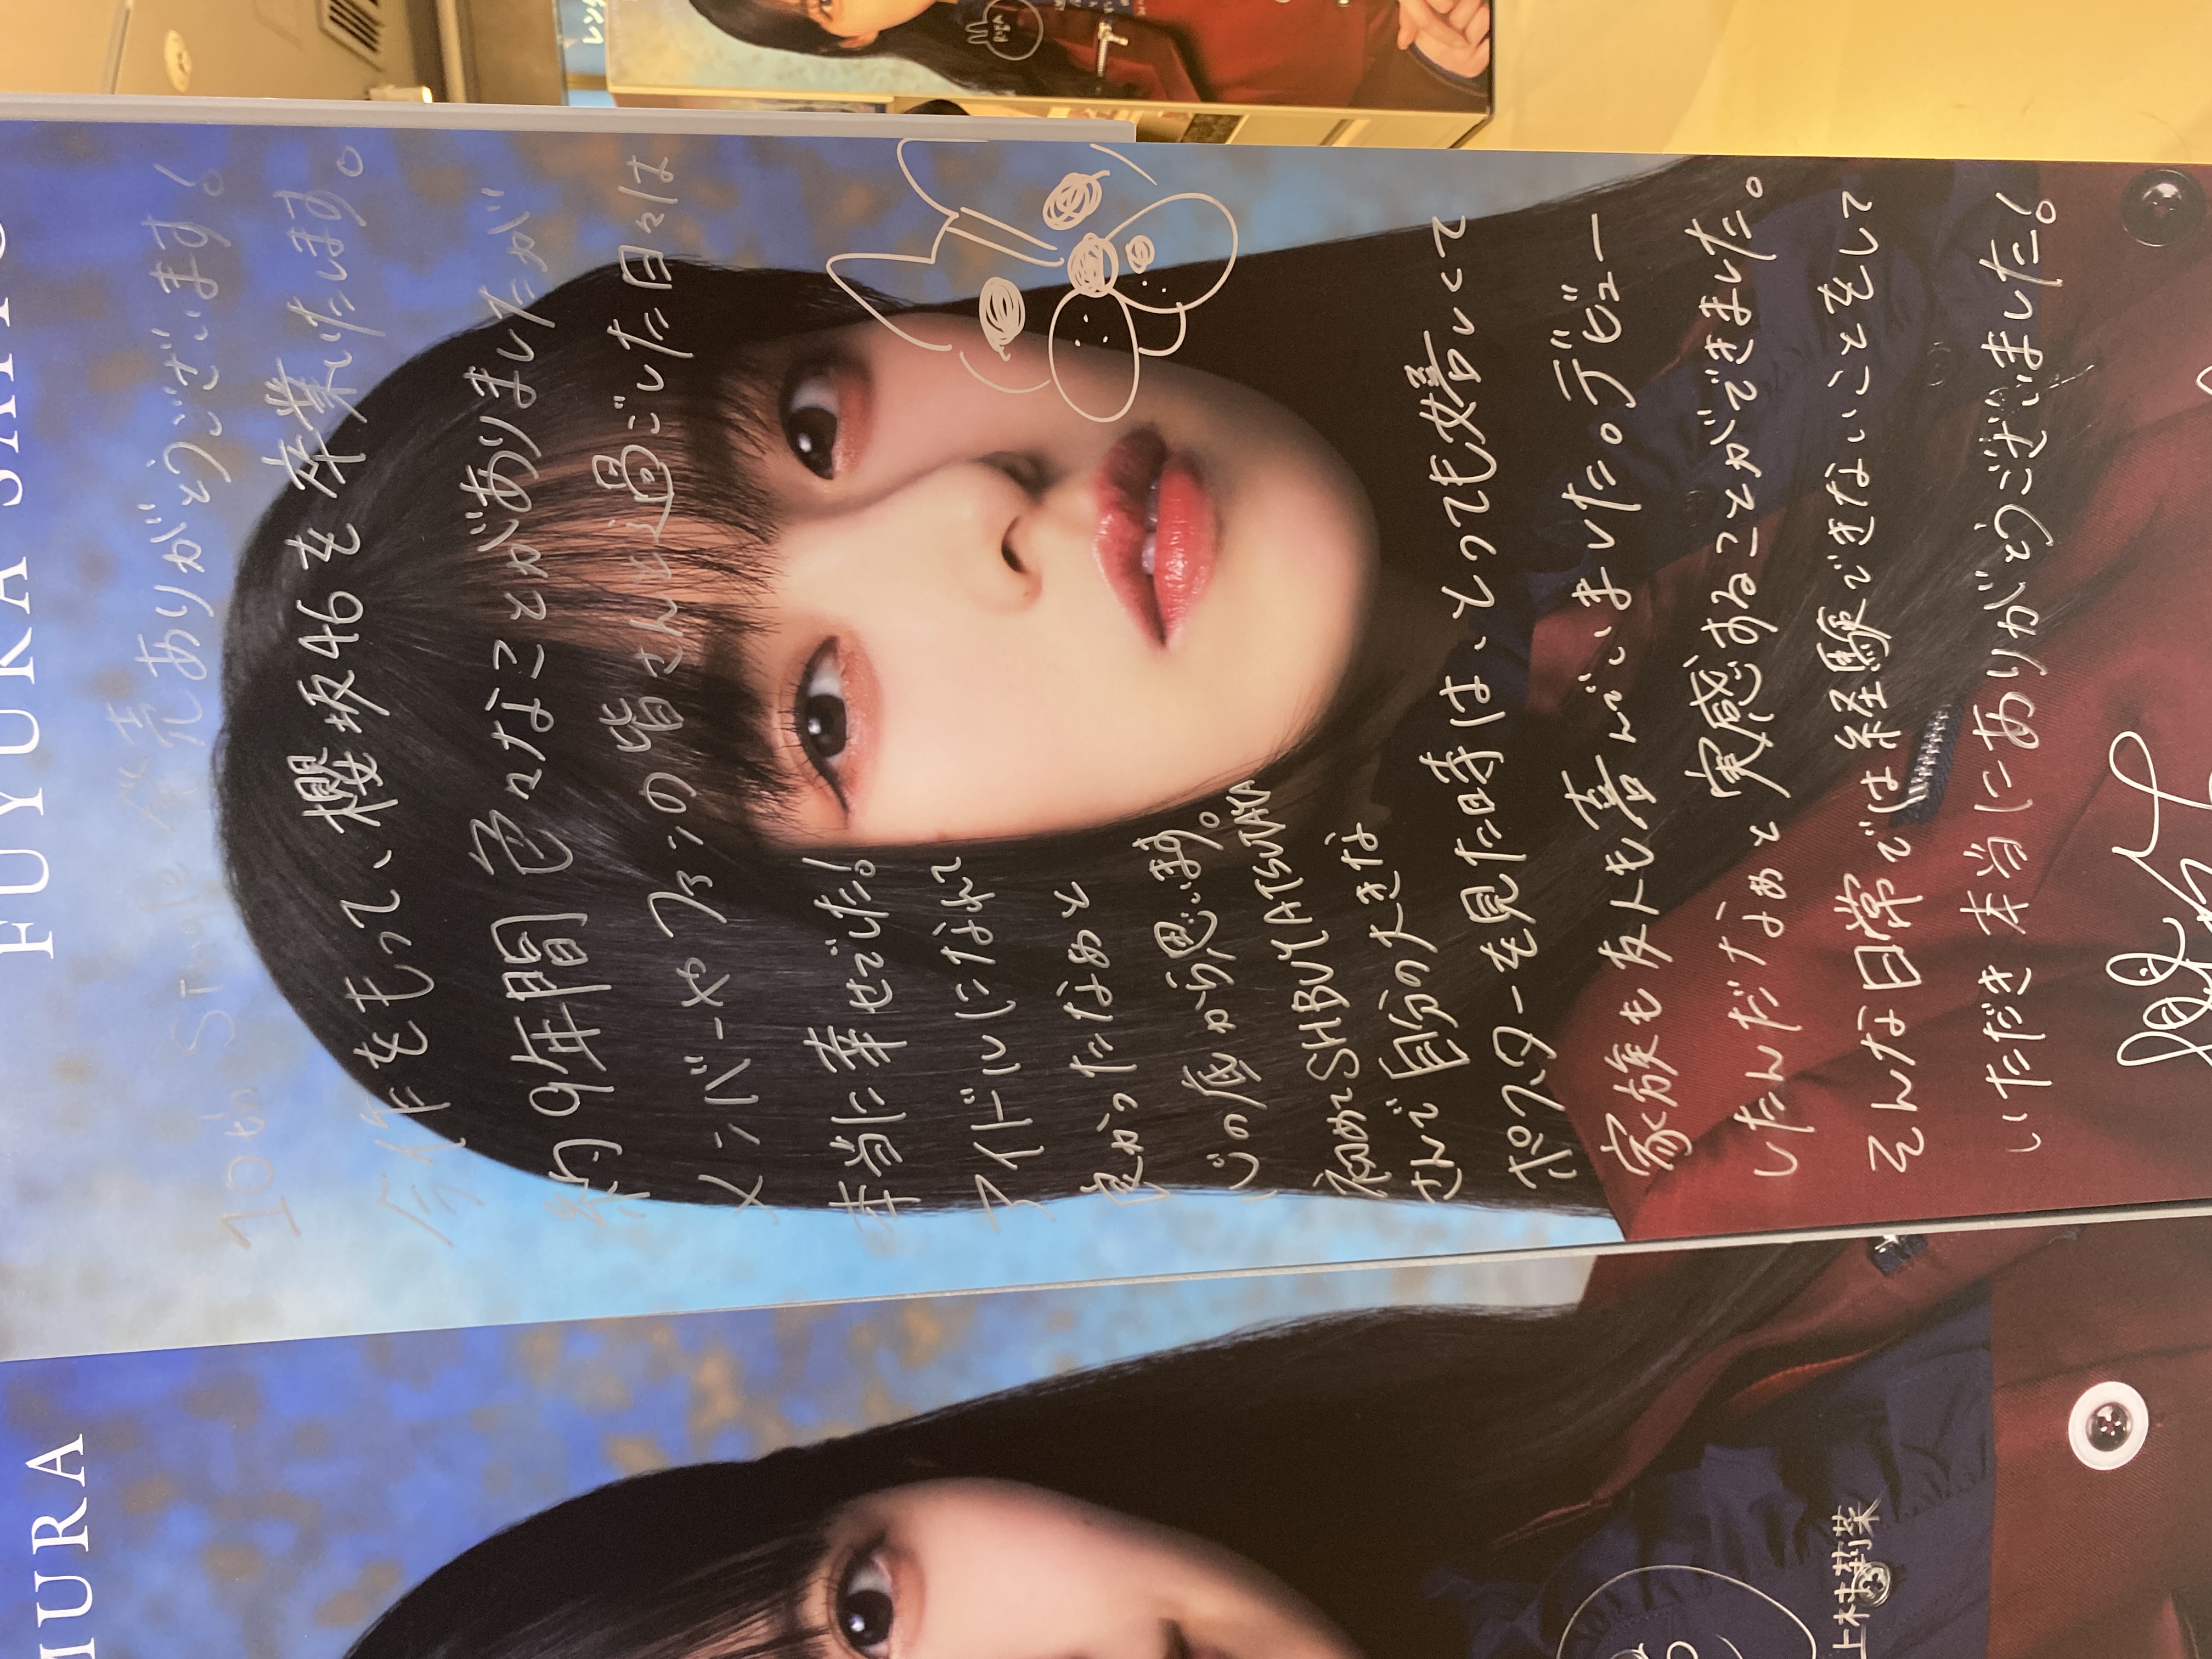 MURA
FUYUKA SAITO
10th Single 発売ありがとうございます!
今作をもって、櫻坂46を卒業いたします。
約9年間色々なことがありましたが
メンバーやファンの皆さんと過ごした日々は
本当に幸せでした!
アイドルになれて
良かったなぁと
心の底から思います。
初めてSHBUYATSUTAYA
さんで自分の大きな
ポスターを見た時は、とっても嬉しくて
家族も友人も喜んでいました。デビュー
したんだなぁと実感することができました。
そんな日常では経験できないことをして
いただき本当にありがとうございました!
上村莉菜
レンタ
RIKA